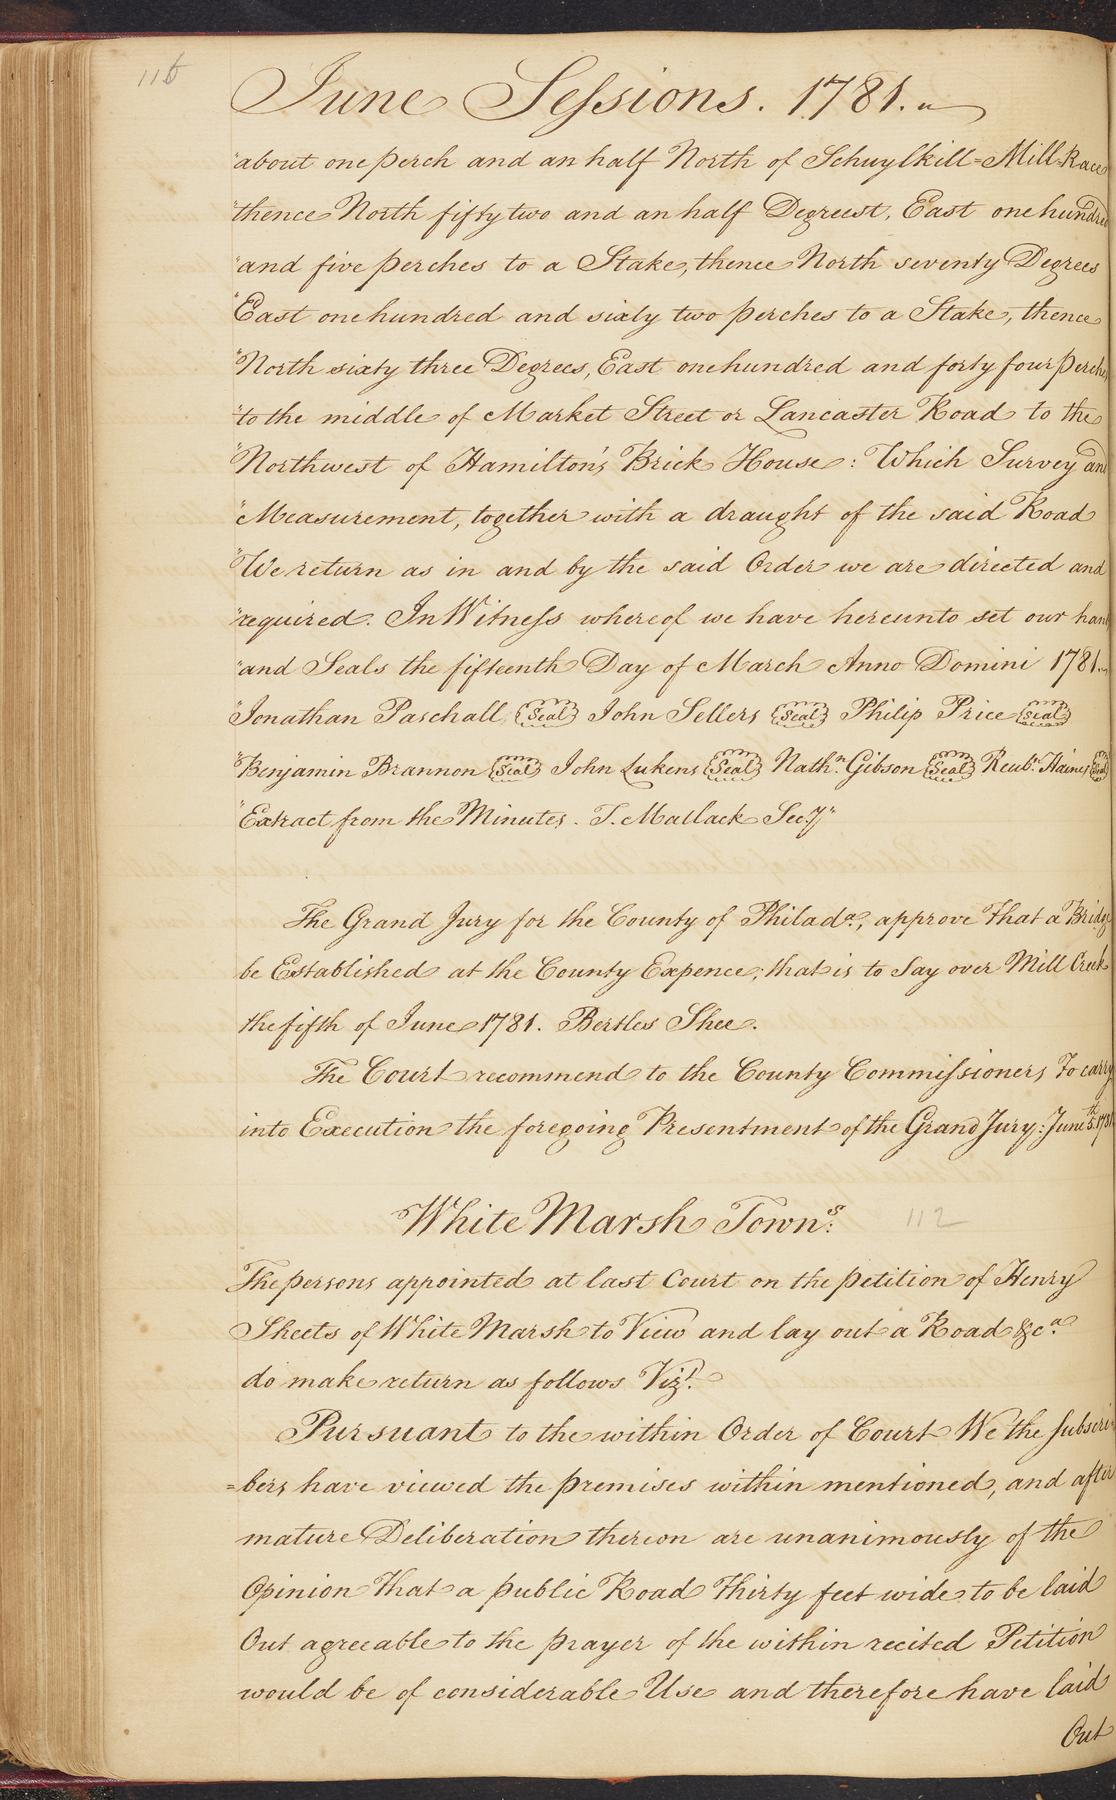 116
June Sessions. 1781.
"about one perch and an half North of Schuylkill=Mill-Race
"thence North fifty two and an half Degreest, East one hundred
"and five perches to a Stake, thence North seventy Degrees
"East one hundred and sixty two perches to a Stake, thence
"North sixty three Degrees, East one hundred and forty four perches
"to the middle of Market Street or Lancaster Road to the
"Northwest of Hamilton's Brick House: Which Survey and
"Measurement, together with a draught of the said Road
"We return as in and by the said Order we are directed and
"required. In Witness whereof we have hereunto set our hand
"and Seals the fifteenth Day of March Anno Domini 1781.
"Jonathan Paschall Seal John Sellers Seal Philip Price Seal
"Benjamin Brannon Seal John Lukens Seal Nathn. Gibson Seal Reubn. Haines Seal
"Extract from the Minutes. T. Matlack Secy"
The Grand Jury for the County of Philada., approve that a Bridge
be Established at the County Expence; that is to say over Mill Creek
the fifth of June 1781. Bertles Shee.
The Court recommend to the County Commissioners to carry
into Execution the foregoing Presentment of the Grand Jury: June 5th 1781
White Marsh Towns:
112
The persons appointed at last Court on the petition of Henry
Sheets of White Marsh to View and lay out a Road &ca.
do make return as follows Vizt.
Pursuant to the within Order of Court We the subscri-
=bers have viewed the premises within mentioned, and after
mature Deliberation thereon are unanimously of the
Opinion that a public Road thirty feet wide to be laid
Out agreeable to the prayer of the within recited Petition
would be of considerable Use and therefore have laid
Out